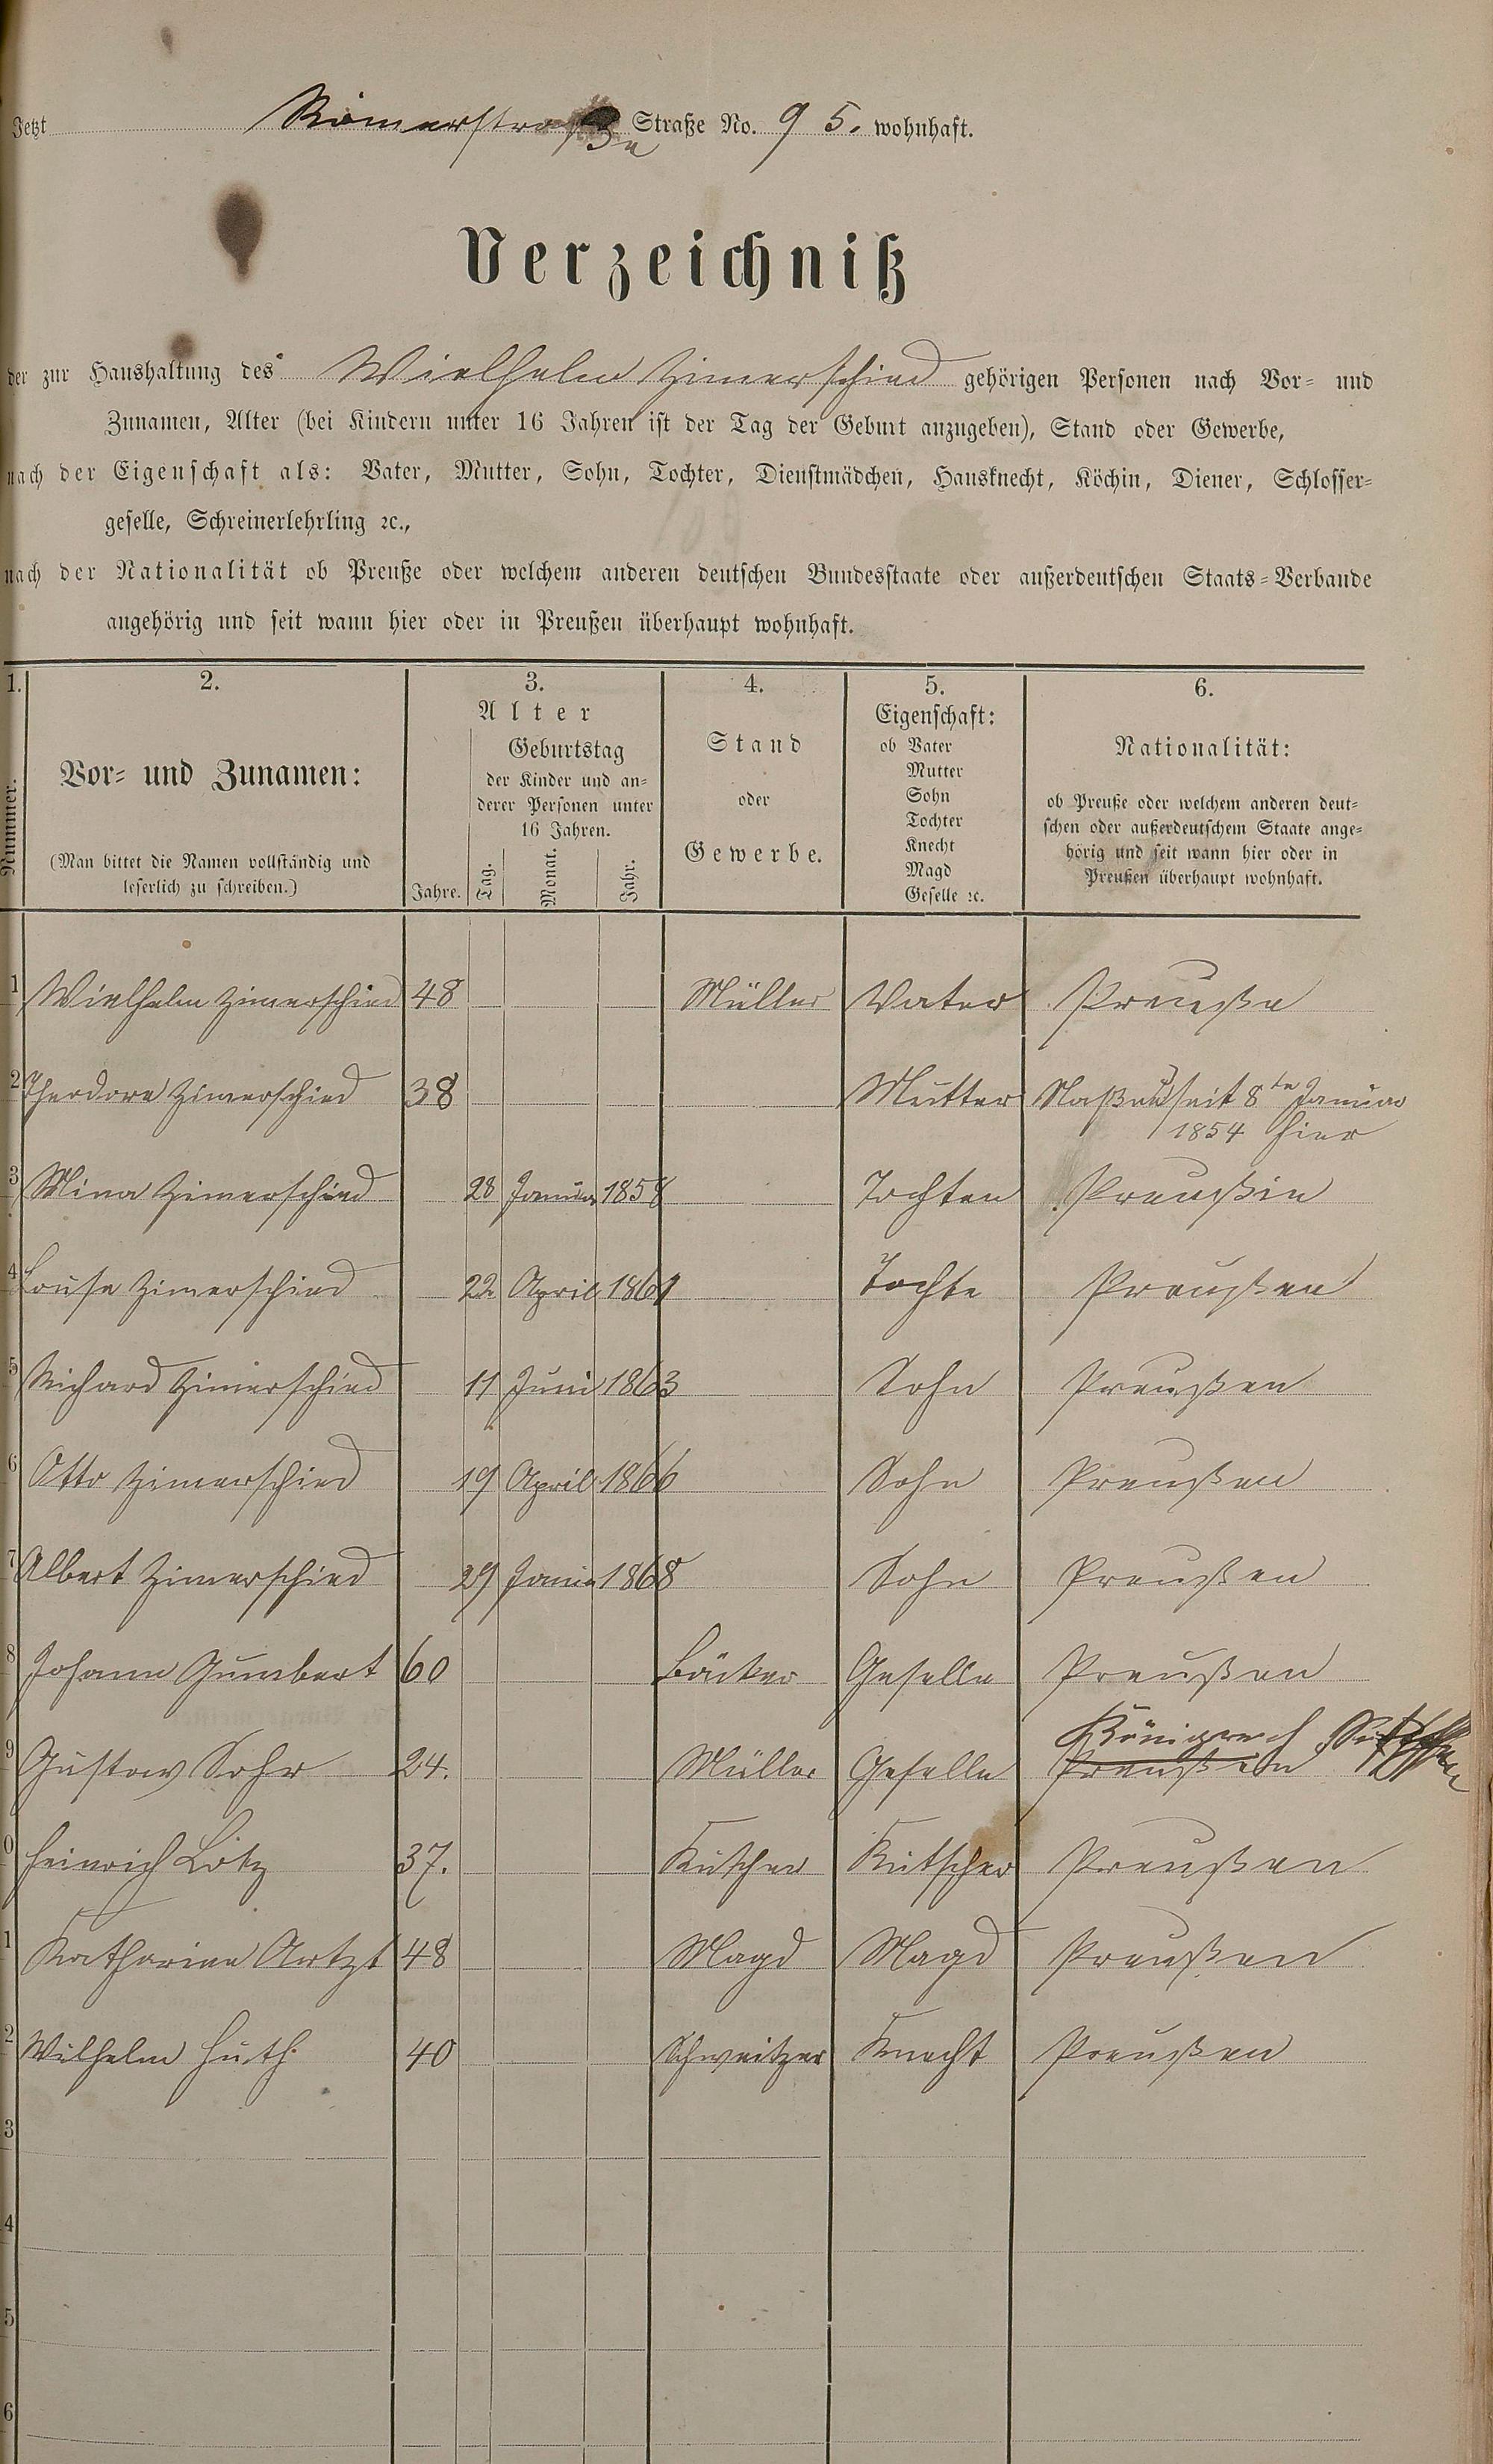 Jetzt Römerstraße Straße No. 95. wohnhaft.
Verzeichniß
der zur Haushaltung des Wielhelm Zimerschied gehörigen Personen nach Vor- und
Zunamen, Alter (bei Kindern unter 16 Jahren ist der Tag der Geburt anzugeben), Stand oder Gewerbe,
nach der Eigenschaft als: Vater, Mutter, Sohn, Tochter, Dienstmädchen, Hausknecht, Köchin, Diener, Schlosser-
geselle, Schreinerlehrling ꝛc.,
nach der Nationalität ob Preuße oder welchem anderen deutschen Bundesstaate oder außerdeutschen Staats-Verbande
angehörig und seit wann hier oder in Preußen überhaupt wohnhaft.
1. 2. 3. 4. 5. 6.
Nummer.
Vor- und Zunamen:
(Man bittet die Namen vollständig und
leserlich zu schreiben.)
Alter
Jahre.
Geburtstag
der Kinder und an-
derer Personen unter
16 Jahren.
Tag. Monat. Jahr.
Stand
oder
Gewerbe.
Eigenschaft:
ob Vater
Mutter
Sohn
Tochter
Knecht
Magd
Geselle ꝛc.
Nationalität:
ob Preuße oder welchem anderen deut-
schen oder außerdeutschem Staate ange-
hörig und seit wann hier oder in
Preußen überhaupt wohnhaft.
1 Wielhelm Zimerschied 48 Müller Vater Preuße
2 Theodore Zimerschied 38 Mutter seit 8te Januar
1854 hier
3 Mina Zimerschied 28 Januar 1858 Tochter Preußin
4 Louise Zimerschied 22 April 1861 Tochte Preußen
5 Richard Zimerschied 11 Juni 1863 Sohn Preußen
6 Otto Zimerschied 19 April 1866 Sohn Preußen
7 Albert Zimerschied 29 1868 Sohn Preußen
8 Johann Gumbert 60 Bäcker Geselle Preußen
Königreich
9 Gustav Sohr 24. Müller Geselle Preußen
0 Heinrich Lotz 37. Kutscher Kutscher Preußen
1 Katharina Artzt 48 Magd Magd Preußen
2 Wilhelm Huth 40 Schweitzer Knecht Preußen
3
4
5
6